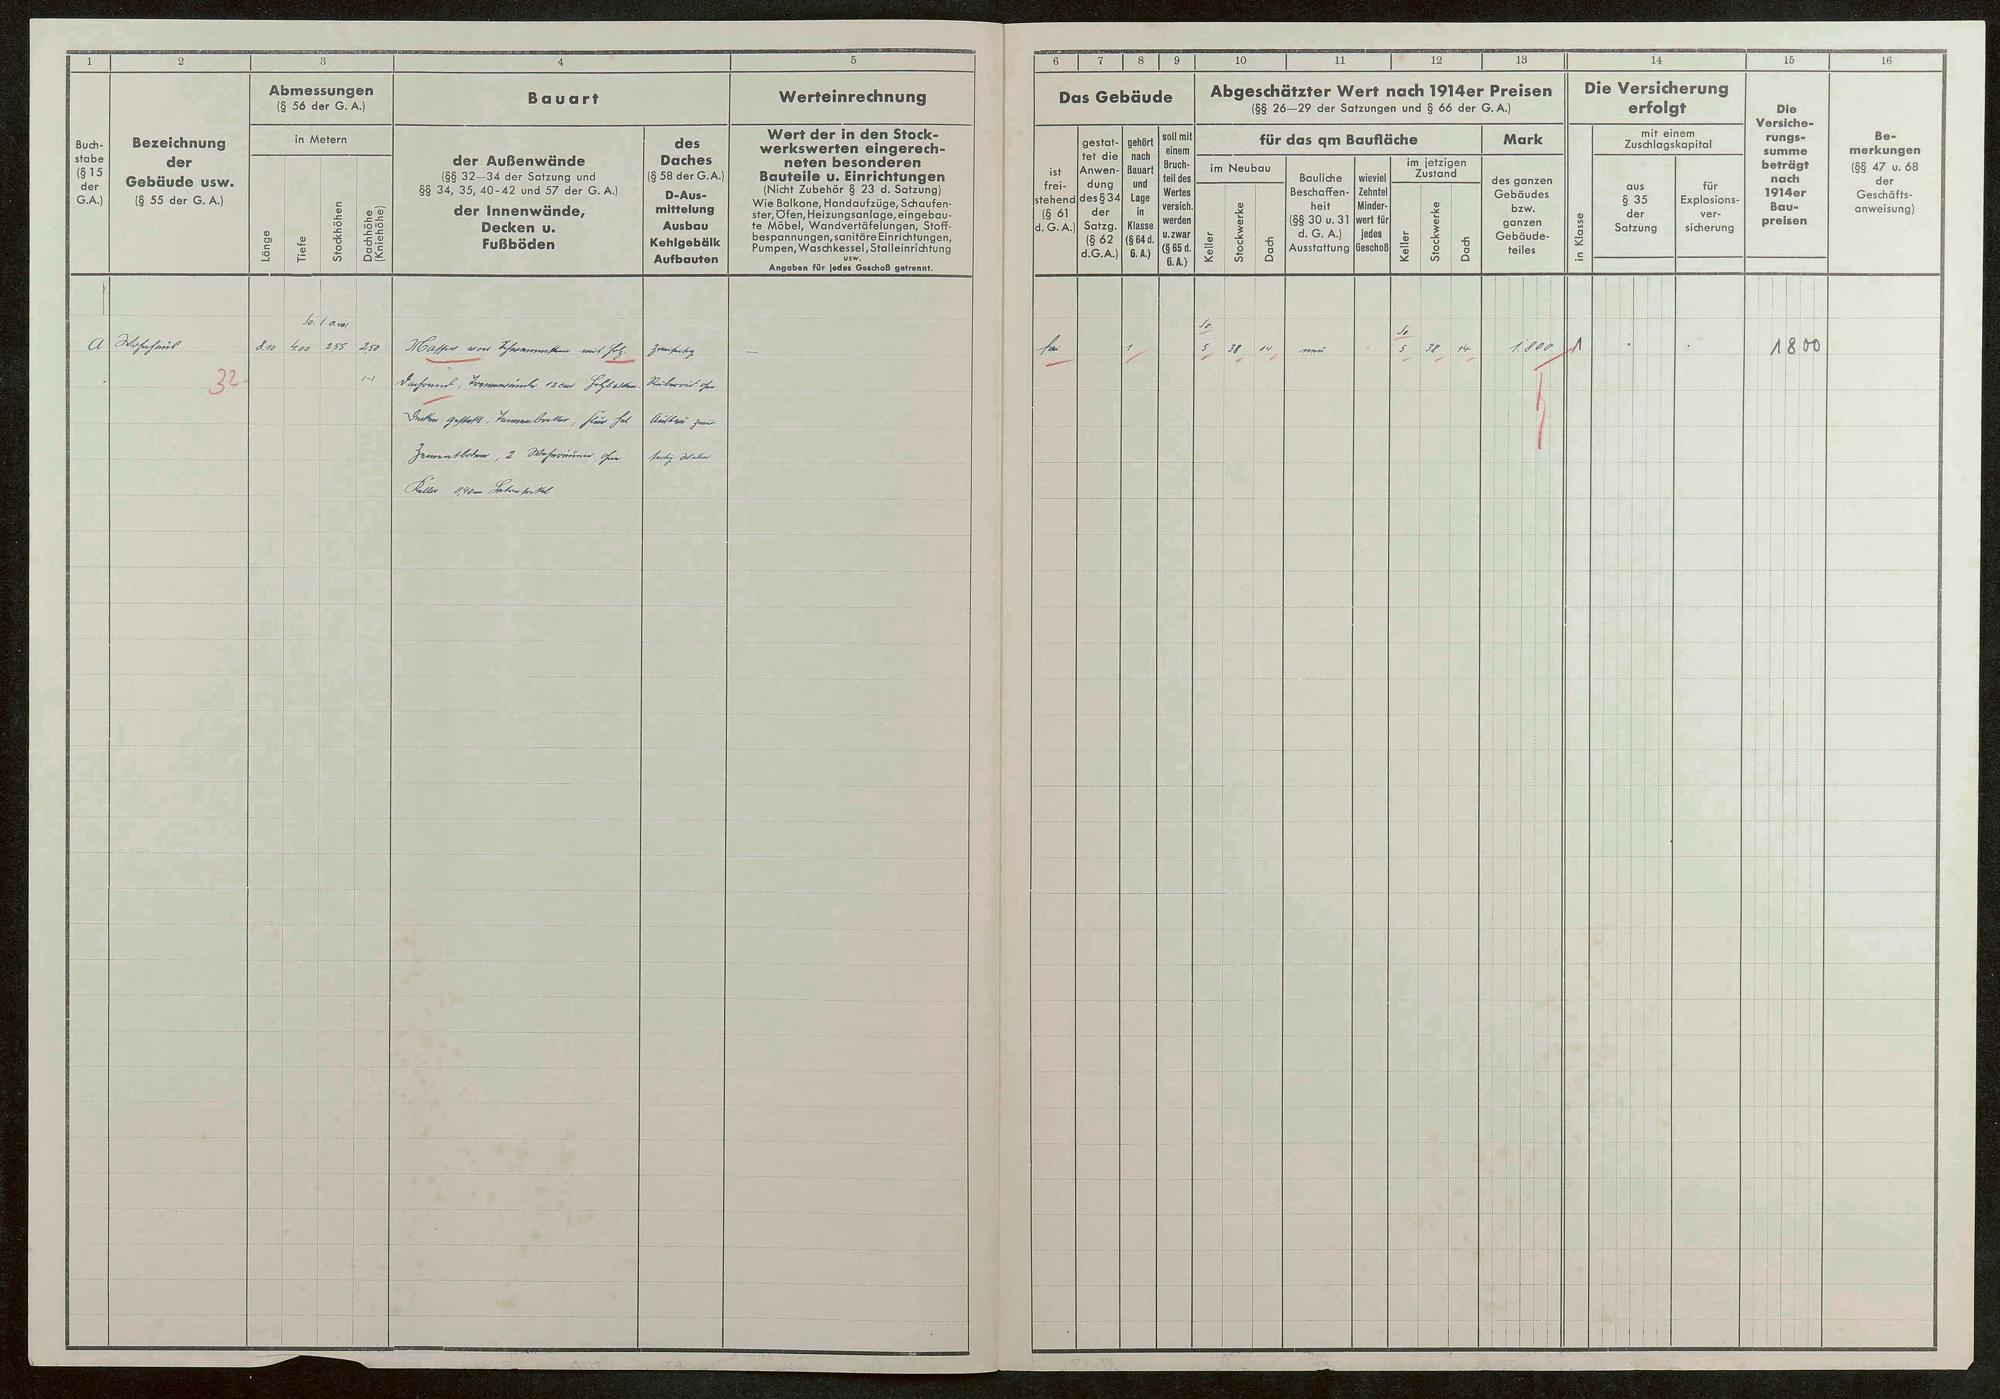 1 2 3 4 5
Buch-
stabe
(§ 15
der
G.A.)
Bezeichnung
der
Gebäude usw.
(§ 55 der G. A.)
Abmessungen
(§ 56 der G. A.)
in Metern
Länge
Tiefe
Stockhöhen
Dachhöhe
(Kniehöhe)
Bauart
der Außenwände
(§§ 32—34 der Satzung und
§§ 34, 35, 40-42 und 57 der G. A.)
der Innenwände,
Decken u.
Fußböden
des
Daches
(§ 58 der G.A.)
D-Aus-
mittelung
Ausbau
Kehlgebälk
Aufbauten
Werteinrechnung
Wert der in den Stock-
werkswerten eingerech-
neten besonderen
Bauteile u. Einrichtungen
(Nicht Zubehör § 23 d. Satzung)
Wie Balkone, Handaufzüge, Schaufen-
ster, Öfen, Heizungsanlage, eingebau-
te Möbel, Wandvertäfelungen, Stoff-
bespannungen, sanitäre Einrichtungen,
Pumpen, Waschkessel, Stalleinrichtung
usw.
Angaben für jedes Geschoß getrennt.
So. 1
A Wohnhaus 8.10 4.00 2.55 2.50 Massiv von Schwemmsteinen mit Holz- zweiseitig —
32 1-1 12 cm Holzbalken-
Decken
Zementboden, 2 Wohnräume ohne
Keller 0,40 m
6 7 8 9 10 11 12 13 14 15 16
Das Gebäude
ist
frei-
stehend
(§ 61
d. G. A.)
gestat-
tet die
Anwen-
dung
des § 34
der
Satzg.
(§ 62
d.G.A.)
gehört
nach
Bauart
und
Lage
in
Klasse
(§ 64 d.
G. A.)
soll mit
einem
Bruch-
teil des
Wertes
versich.
werden
u. zwar
(§ 65 d.
G. A.)
Abgeschätzter Wert nach 1914er Preisen
(§§ 26—29 der Satzungen und § 66 der G. A.)
für das qm Baufläche
im Neubau
Keller
Stockwerke
Dach
Bauliche
Beschaffen-
heit
(§§ 30 u. 31
d. G. A.)
Ausstattung
wieviel
Zehntel
Minder-
wert für
jedes
Geschoß
im jetzigen
Zustand
Keller
Stockwerke
Dach
Mark
des ganzen
Gebäudes
bzw.
ganzen
Gebäude-
teiles
Die Versicherung
erfolgt
in Klasse
mit einem
Zuschlagskapital
aus
§ 35
der
Satzung
für
Explosions-
ver-
sicherung
Die
Versiche-
rungs-
summe
beträgt
nach
1914er
Bau-
preisen
Be-
merkungen
(§§ 47 u. 68
der
Geschäfts-
anweisung)
So. So.
frei 1 5 38 14 neu 5 38 14 1.800 1 1800